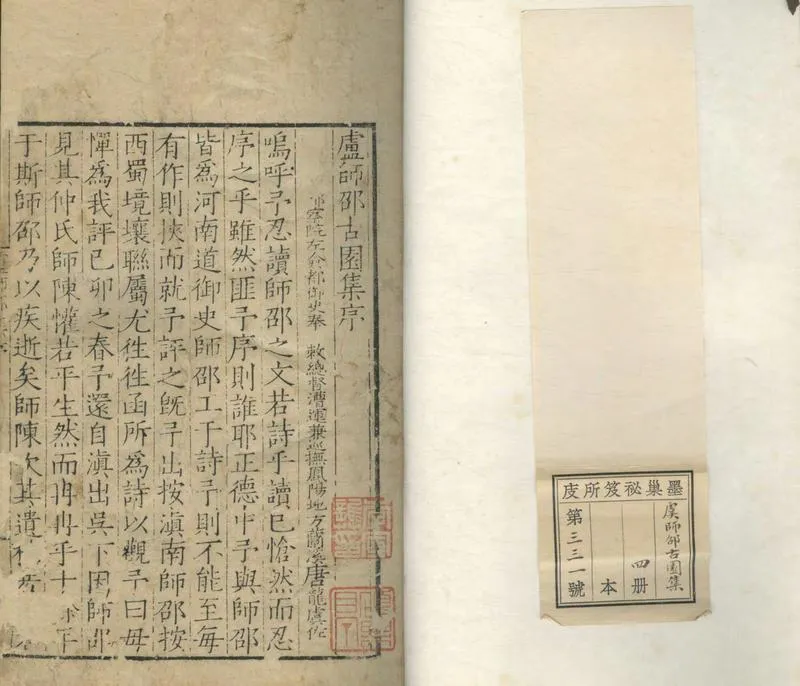 盧師邵古園集序
都察院左僉都御史奉 敕總督漕運兼巡撫鳳陽地方蘭溪唐龍虞佐
嗚呼予忍讀師邵之文若詩乎讀已愴然而忍
序之乎雖然匪予序則誰耶正德中予與師邵
皆為河南道御史師邵工于詩予則不能至每
有作則挾而就予評之旣予出按滇南師邵按
西蜀境壤聯屬尤徃徃函所為詩以觀予曰毋
憚為我評已卯之春予還自滇出吳下因師邵
見其仲氏師陳懽若平生然而冉冉乎十
于斯師邵乃以疾逝矣師陳次其遺
墨巢祕笈所庋
虞師邵古園集
四册
本
第三三一號